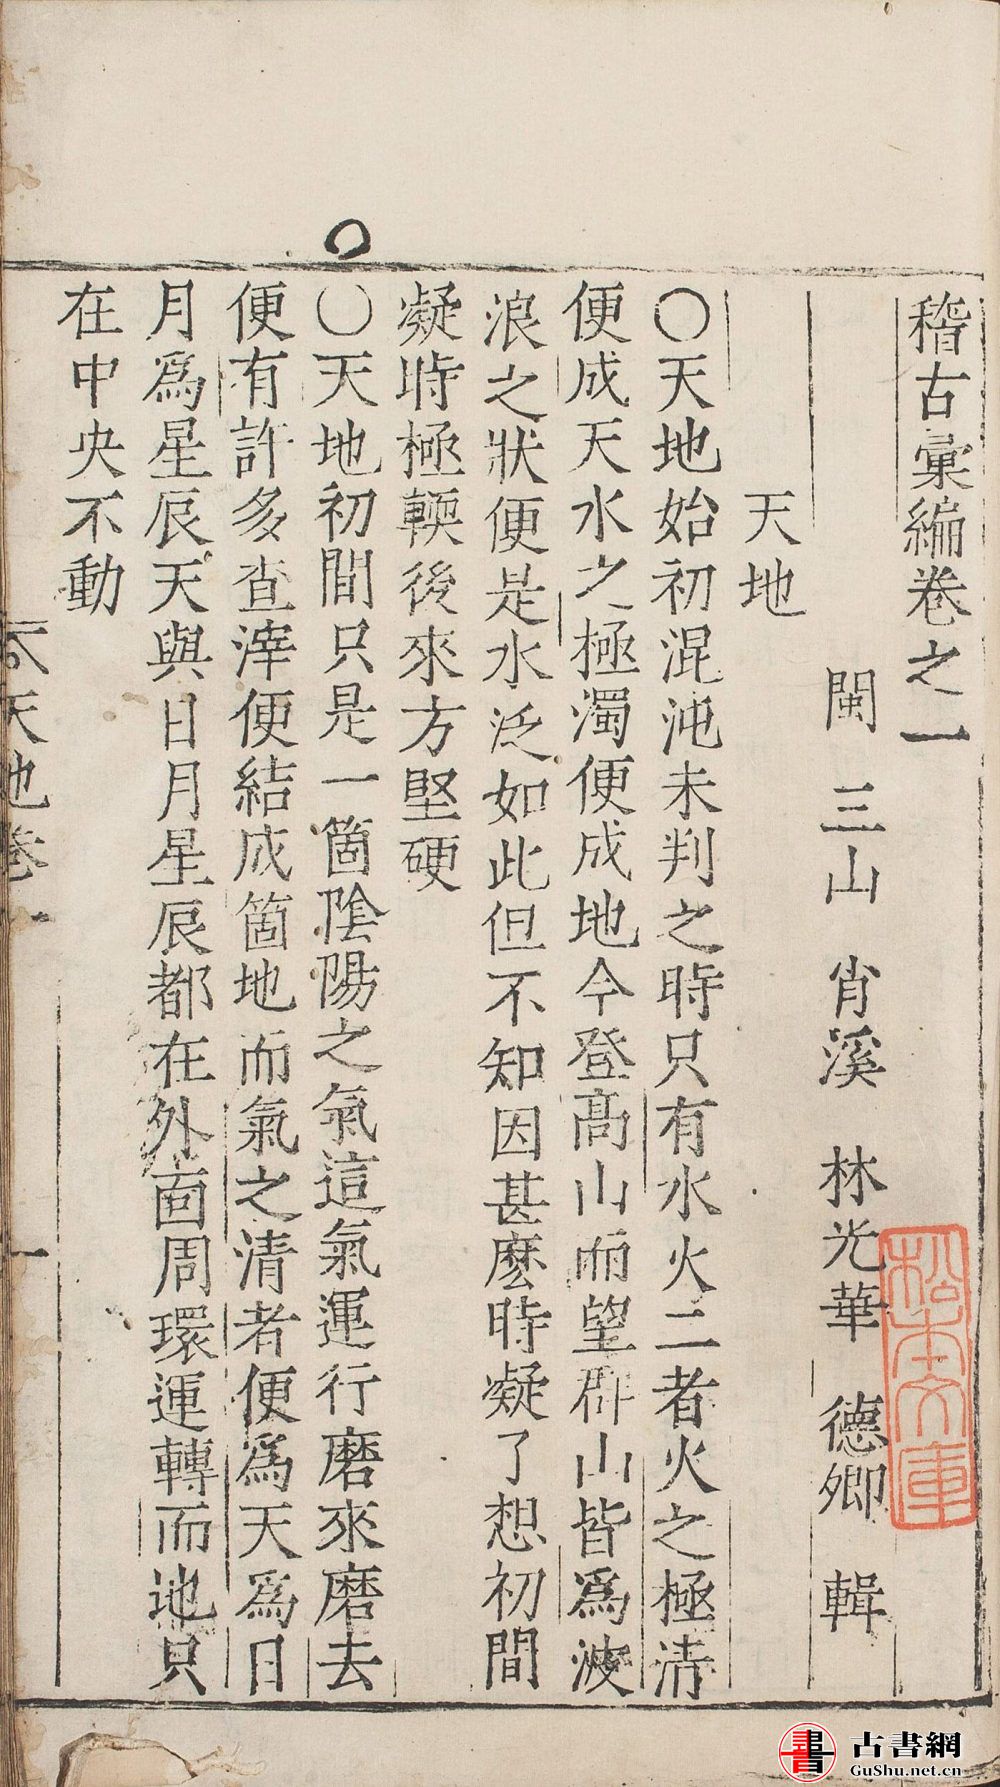 稽古彙編卷之一
閩 三山 肖溪 林光華 德卿 輯
天地
〇天地始初混沌未判之時只有水火二者火之極清
便成天水之極濁便成地今登高山而望群山皆爲波
浪之狀便是水泛如此但不知因甚麽時凝了想初間
凝時極輭後來方堅硬
〇天地初間只是一箇陰陽之氣這氣運行磨來磨去
便有許多查滓便結成箇地而氣之清者便爲天爲日
月爲星辰天與日月星辰都在外面周環運轉而地只
在中央不動
天地卷一
一
松本文庫
書 古書網
GuShu.net.cn